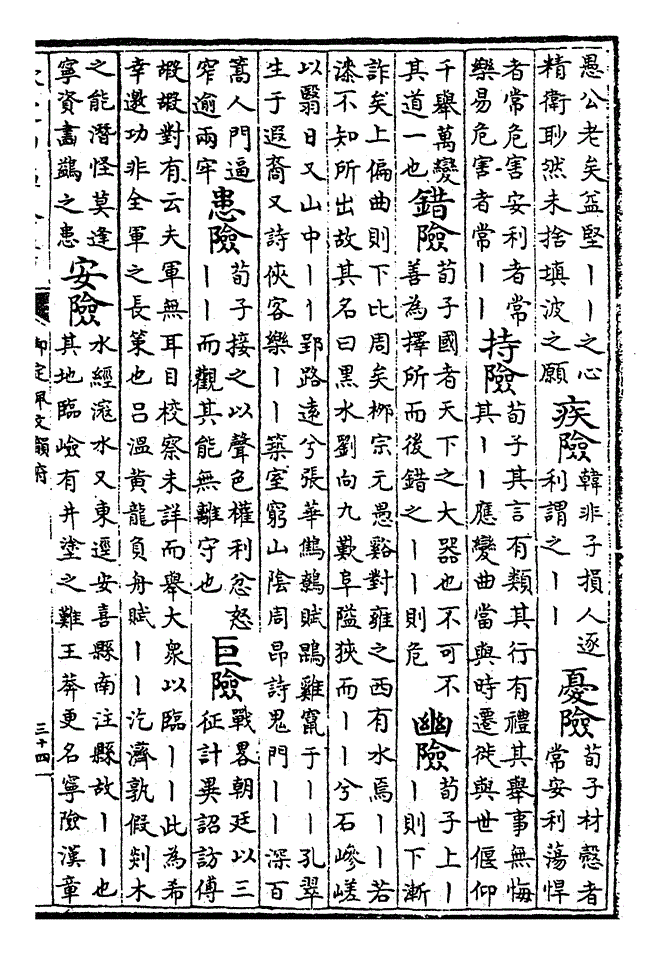 愚公老矣益堅丨丨之心
精衛耿然未捨填波之願
疾險
韓非子損人逐
利謂之丨丨
憂險
荀子材愨者
常安利蕩悍
者常危害安利者常
樂易危害者常丨丨
持險
荀子其言有類其行有禮其舉事無悔
其丨丨應變曲當與時遷徙與世偃仰
千舉萬變
其道一也
錯險
荀子國者天下之大器也不可不
善為擇所而後錯之丨丨則危
幽險
荀子上丨
丨則下漸
詐矣上偏曲則下比周矣栁宗元愚谿對雍之西有水焉丨丨若
漆不知所出故其名曰黒水劉向九歎阜隘狹而丨丨兮石嵾嵯
以翳日又山中丨丨郢路遠兮張華鷦鷯賦鶤雞竄于丨丨孔翠
生于遐裔又詩俠客樂丨丨築室窮山陰周昂詩鬼門丨丨深百
蒿人門逼
窄逾兩牢
患險
荀子接之以聲色權利忿怒
丨丨而觀其能無離守也
巨險
戰畧朝廷以三
征計異詔訪傅
嘏嘏對有云夫軍無耳目校察未詳而舉大衆以臨丨丨此為希
幸邀功非全軍之長策也呂溫黄龍負舟賦丨丨汔濟孰假剡木
之能潛怪莫逢
寧資畵鷁之患
安險
水經滱水又東逕安喜縣南注縣故丨丨也
其地臨嶮有井塗之難王莽更名寧險漢章
御定佩文韻府
三十四